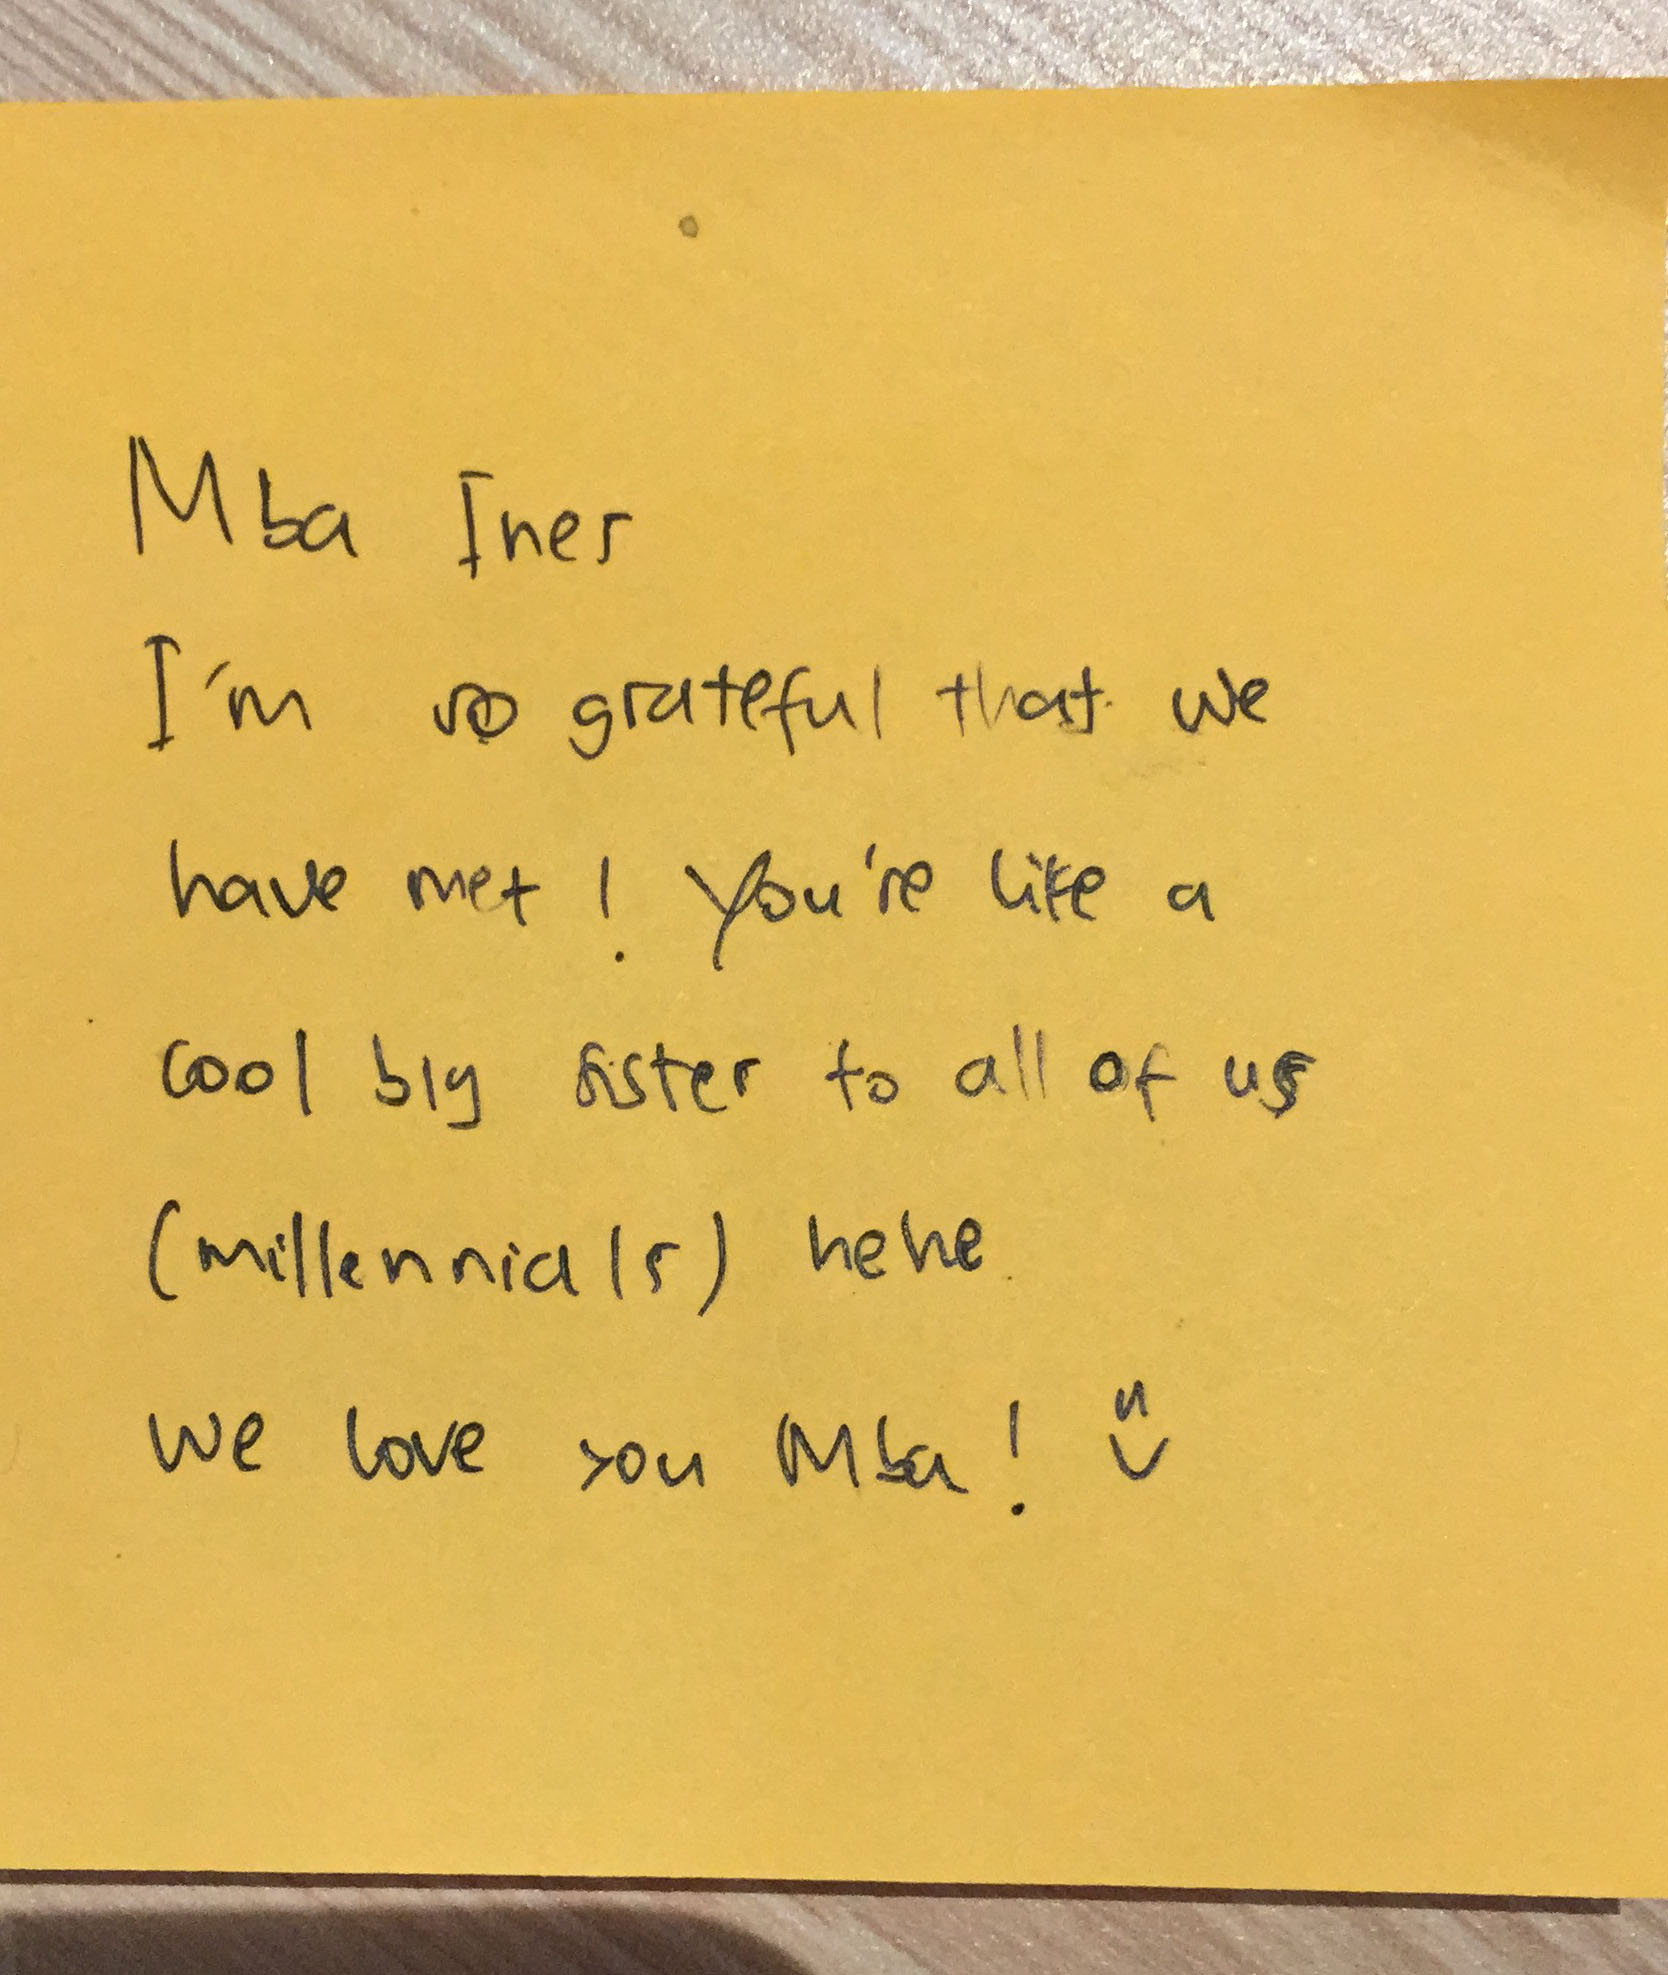 Mba Ines
I'm so grateful that we
have met! You're like a
cool big sister to all of us
(millennials) hehe
We love you Mba!